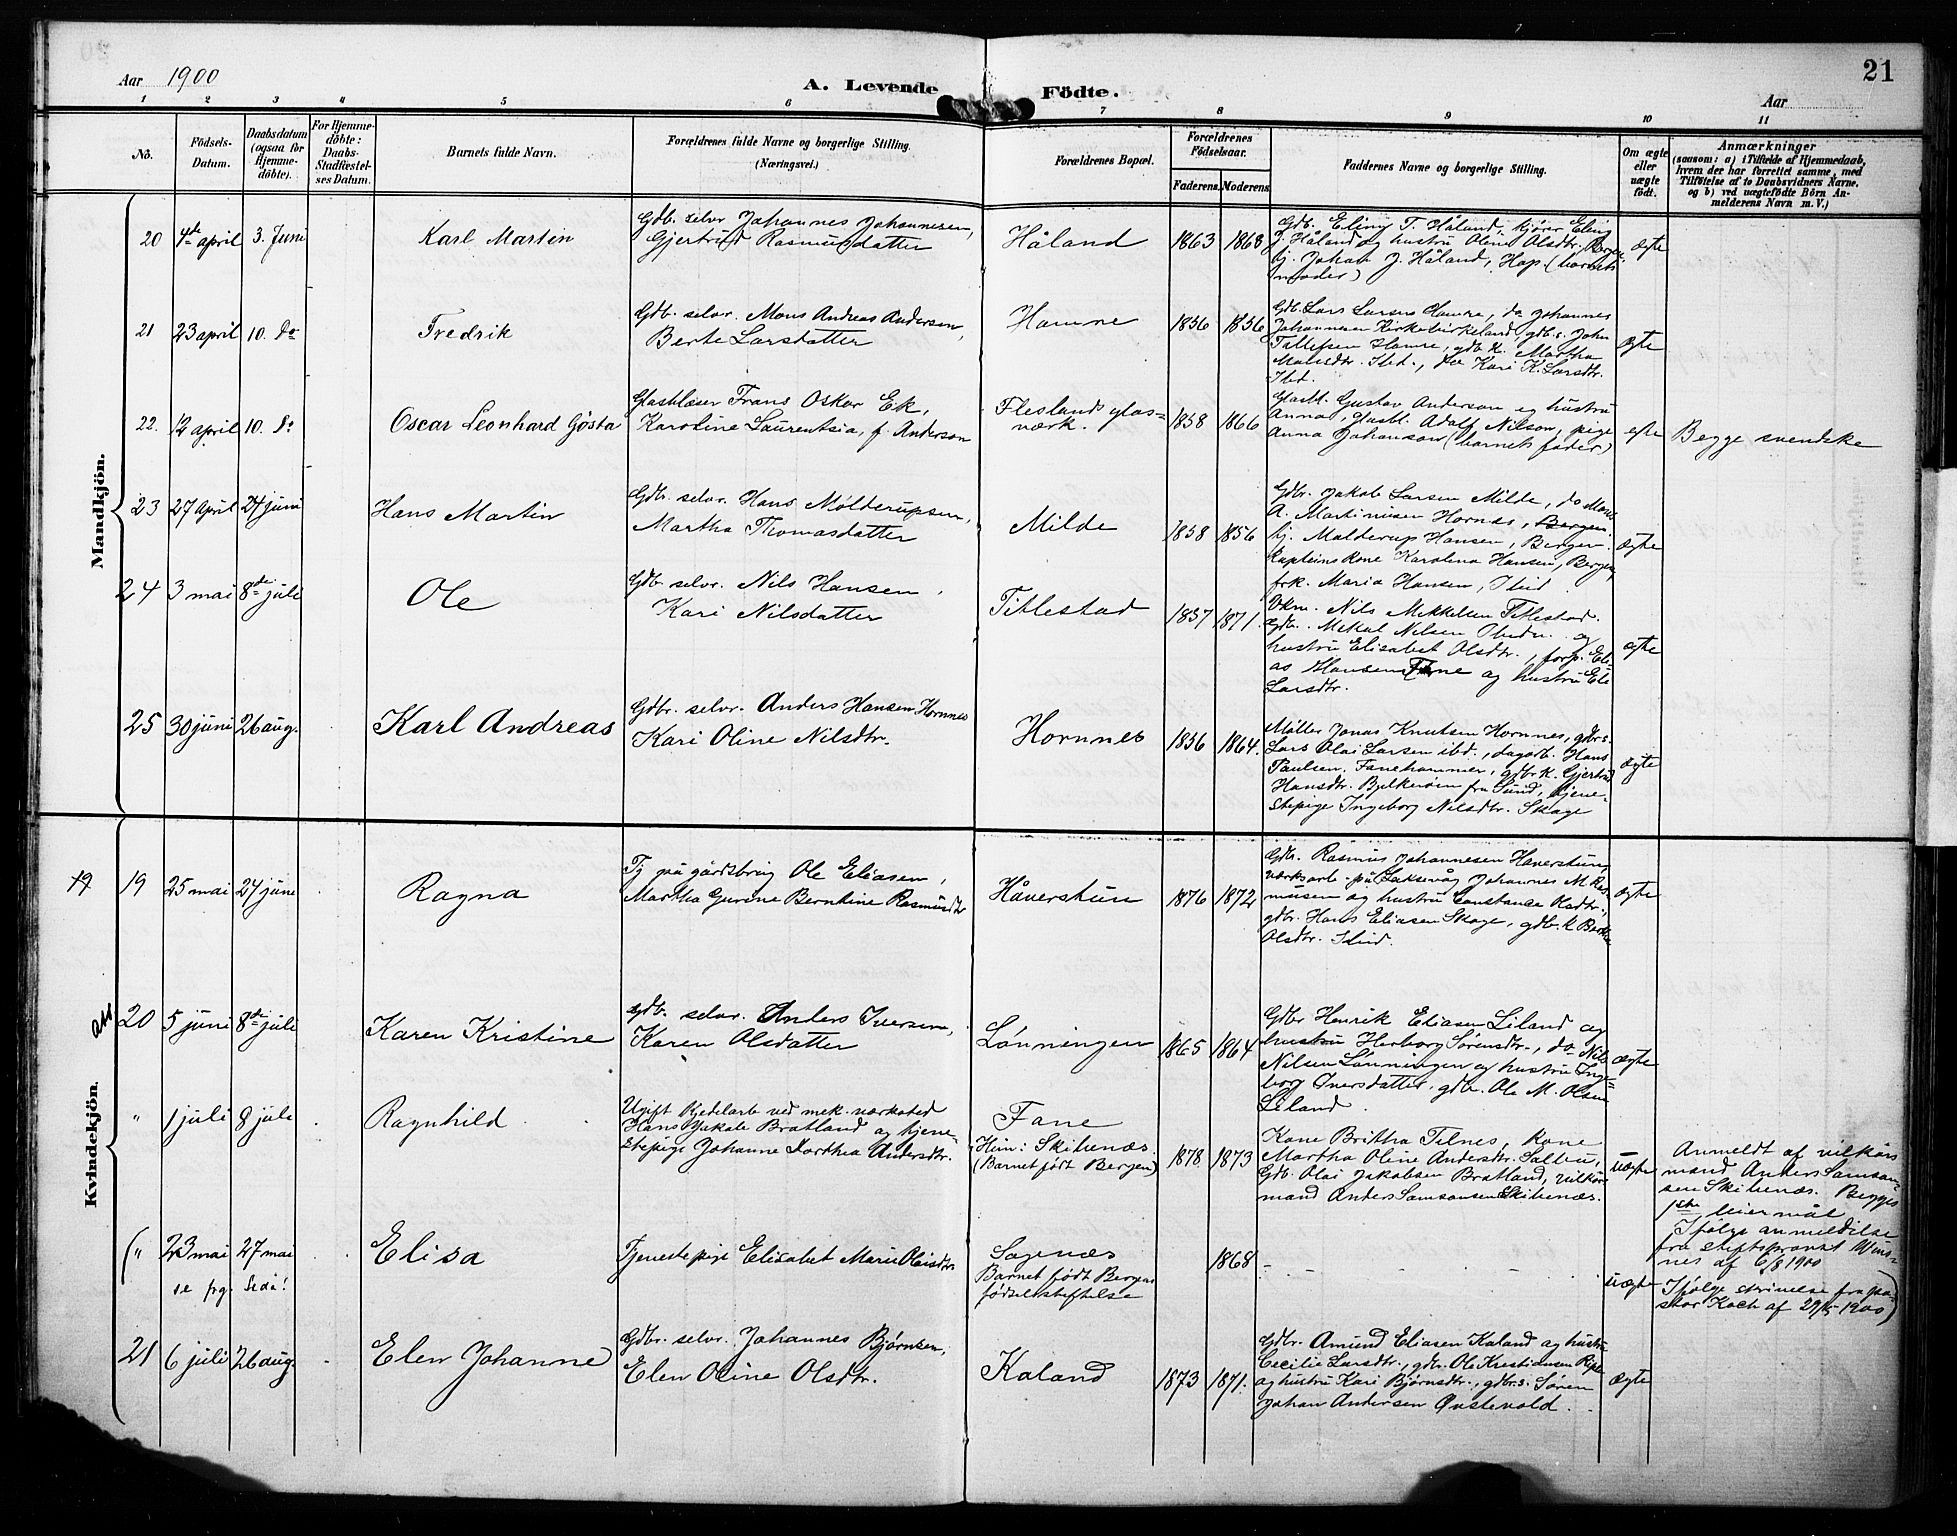 Aar 1900
A. Levende Födte.
21
Aar
1 2 3 4 5 6 7 8 9 10 11
No.
Födsels-
Datum.
Daabsdatum
(ogsaa for
Hjemme-
döbte).
For Hjemme-
döbte:
Daabs-
Stadfæstel-
ses Datum.
Barnets fulde Navn.
Forældrenes fulde Navne og borgerlige Stilling.
(Næringsvei.)
Forældrenes Bopæl.
Forældrenes
Födselsaar.
Faderens. Moderens.
Faddernes Navne og borgerlige Stilling.
Om ægte
eller
uægte
født.
Anmærkninger
(saasom: a) i Tilfælde af Hjemmedaab,
hvem der har forrettet samme, med
Tilföielse af to Daabsvidners Navne.
og b) ved uægtefödte Börn An-
melderens Navn m. V.)
Mandkjön.
20 4de april 3. Juni
Karl Martin
Gdb. selvr Johannes Johannesen,
Gjertrud Rasmusdatter
Håland
1863 1868
Gdb. Eling T. Håland, kjører Eling
J. Håland og hustru Oline Olsdtr. Bergen.
tj. Johan J. Håland, Hop. (barnets
moder)
ægte
21 23 april 10. do
Fredrik
Gdb. selvr. Mons Andreas Andersen,
Berte Larsdatter
Hamre
1856 1856
Gdb. Lars Larsen Hamre, do Johannes
Johannesen Kirkebirkeland, gdb.s. John
Tollefsen Hamre, gdb.k. Martha
Monsdtr. Ibd., do Kari K. Larsdtr.
Ibd.
ægte
22. 12 april 10. do
Oscar Leonhard Gøsta
Glasblæser Frans Oskar Ek,
Karoline Laurentsia, f. Anderson
Fleslands glas-
værk.
1858 1866
Glasbl. Gustav Anderson og hustru
Anna, glasbl. Adolf Nilson, pige
Anna Johanson (barnets fader)
egte
Begge svendske
23 27 April 24 juni
Hans Martin
Gdb. selvr. Hans Mølderupsen,
Martha Thomasdatter
Milde
1858 1856
Gdbr. Jakob Larsen Milde, do Mons
A. Martinusen Hornes, Bergen
tj. Molderup Hansen, Bergen.
Kapteins Kone Karolina Hansen, Bergen,
frk. Maria Hansen, Ibid.
ægte
24 3 mai 8de juli
Ole
Gdb. selvr. Nils Hansen,
Kari Nilsdatter
Titlestad
1857 1871.
Vkm. Nils Mikkelsen Titlestad.
Gdb. Mikal Nilsen Ibidm. og
hustru Elisabet Olsdtr., forp. Eli-
as Hansen Fane og hustru Eli
Larsdtr.
ægte
25 30 juni 26 aug.
Karl Andreas
Gdbr. selvr. Anders Hansen Hornnes
Kari Oline Nilsdtr.
Hornnes
1856 1864.
Møller Jonas Knutsen Hornnes, gdbr.s.
Lars Olai Larsen ibd., dagarb. Hans
Paulsen, Fanehammer, gdbr.k. Gjertrud
Hansdtr. Bjelkerøen fra Sund, tjene-
stepige Ingeborg Nilsdtr. Skage
ægte
Kvindekjön.
19 19 25 mai 24 june
Ragna
Tj på gårdsbrug Ole Eliasen,
Martha Gurine Berntine Rasmusdtr
Håverstun
1876 1872
Gdbr. Rasmus Johannesen Haverstun,
værksarb. på Laksevåg Johannes M Ras-
musen og hustru Constance Kadtr.,
gdbr. Hans Eliasen Skage, gdb.k Bertha
Olsdtr. Ibid.
ægte
20 5 juni 8de juli
Karen Kristine
Gdb. selvr. Anders Iversen,
Karen Olsdatter
Lønningen
1865 1864
Gdbr Henrik Eliasen Liland og
hustru Herborg Sørensdtr., do Nils
Nilsen Lønningen og hustru Inge-
borg Iversdatter, gdb. Ole M. Olsen
Liland.
ægte
" 1 juli 8 juli
Ragnhild
Ugift Kjedelarb ved mek. værksted
Hans Jakob Bratland og tjene-
stepige Johanne Dorthea Andersdtr.
Fane
Hein: Skibenæs.
(Barnet født Bergen)
1878 1873
Kone Britha Tilnes, Kone
Martha Oline Andersdtr. Salbu,
Gdb. Olai Jakobsen Bratland, vilkår-
mand Anders Samsonsen Skibenæs.
uægte
Anmeldt af vilkårs
mand Anders Samson-
sen Skibenæs. Begges
1ste leiermål
Ifølge anmeldelse
fra stiftsprovst Wins-
nes af 6/8 1900
(" 23 mai 27 mai
se pg. 1 eda!
Elisa
Tjenestepige Elisabet Marie Olaisdtr
Sagenæs
Barnet født Bergens
fødselsstiftelse
1868
uægte
Ifølge skrivelse fra pa-
stor Koch af 29/5 1900)
21 6 juli 26 aug.
Elen Johanne
Gdbr. selvr. Johannes Bjørnsen,
Elen Oline Olsdtr.
Kaland
1873 1871.
Gdbr. Amund Eliasen Kaland og hustru
Cecilie Larsdtr., gdb. Ole Kristiansen Riple
og hustru Kari Bjørnsdtr., gdbr.s. Søren
Johan Andersen Øvstevold.
ægte